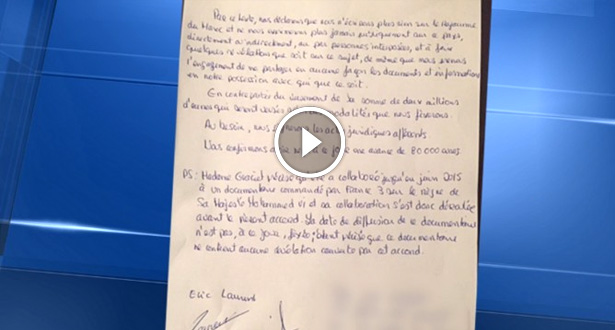 Par ce texte, nous déclarons que nous n'écrirons plus rien sur le Royaume
du Maroc et ne nous exprimerons plus jamais publiquement sur ce pays,
directement ni indirectement, ou par personnes interposées, et à faire
quelques révélations que soit sur ce sujet, de même que nous prenons
l'engagement de ne partager en aucune façon les documents et informations
en notre possession avec qui que ce soit.
En contrepartie du versement de la somme de deux millions
d'euros qui seront versés modalités que nous fixerons.
Au besoin, nous les actes juridiques afférents.
Nous confirmons avoir à ce jour une avance de 80 000 euros
PS: Madame Graciet précise qu'elle a collaboré jusqu'au juin 2015
à un documentaire commandé par France 3 sur le règne de
Sa Majesté Mohammed VI et sa collaboration s'est donc déroulée
avant le présent accord. La date de diffusion de ce documentaire
n'est pas, à ce jour, fixée; étant précisé que ce documentaire
ne contient aucune révélation couverte par cet accord.
Eric Laurent